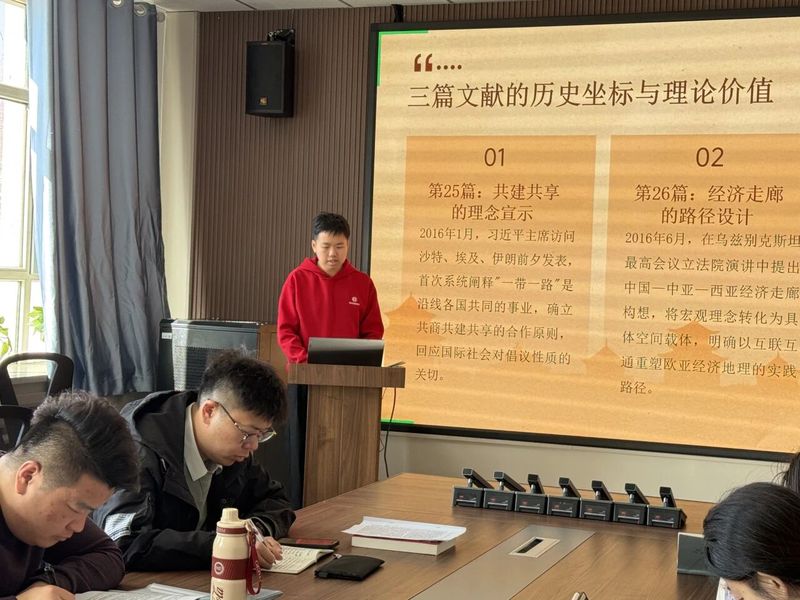 三篇文献的历史坐标与理论价值
01
第25篇：共建共享
的理念宣示
2016年1月，习近平主席访问
沙特、埃及、伊朗前夕发表，
首次系统阐释"一带一路"是
沿线各国共同的事业，确立
共商共建共享的合作原则，
回应国际社会对倡议性质的
关切。
02
第26篇：经济走廊
的路径设计
2016年6月，在乌兹别克斯坦
最高会议立法院演讲中提出
中国—中亚—西亚经济走廊
构想，将宏观理念转化为具
体空间载体，明确以互联互
通重塑欧亚经济地理的实践
路径。